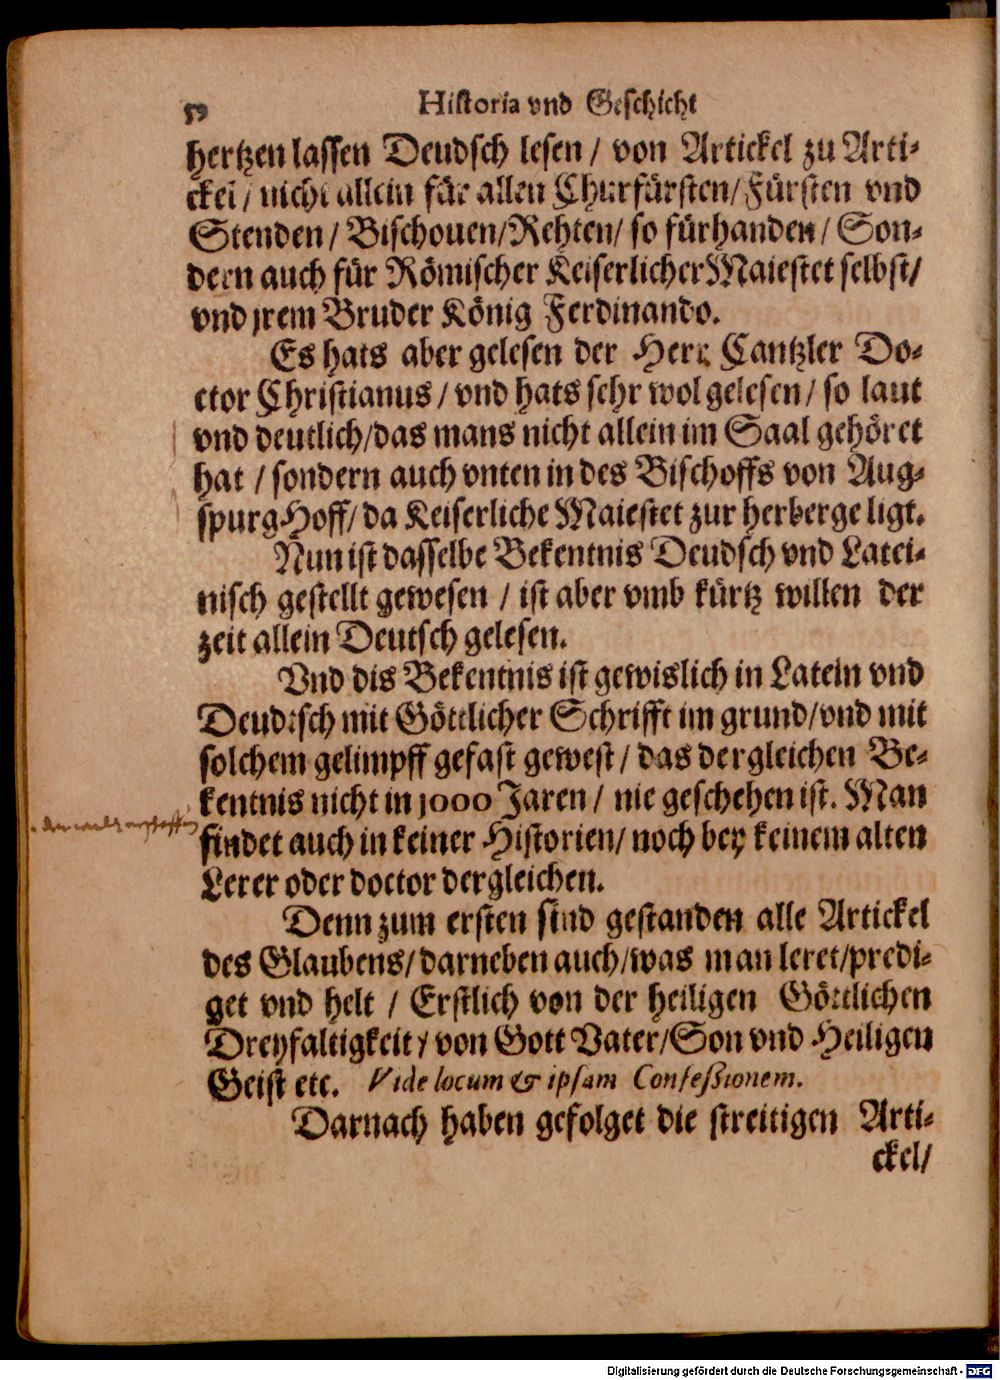 59 Historia vnd Geschicht
hertzen lassen Deudsch lesen / von Artickel zu Arti-
ckel / nicht allein für allen Churfürsten/Fürsten vnd
Stenden / Bischouen/Rehten/ so fürhanden / Son-
dern auch für Römischer Keiserlicher Maiestet selbst/
vnd jrem Bruder König Ferdinando.
Es hats aber gelesen der Herr Cantzler Do-
ctor Christianus / vnd hats sehr wol gelesen / so laut
vnd deutlich/das mans nicht allein im Saal gehöret
hat / sondern auch vnten in des Bischoffs von Aug-
spurg Hoff/ da Keiserliche Maiestet zur herberge ligt.
Nun ist dasselbe Bekentnis Deudsch vnd Latei-
nisch gestellt gewesen / ist aber vmb kürtz willen der
zeit allein Deutsch gelesen.
Vnd dis Bekentnis ist gewislich in Latein vnd
Deudtsch mit Göttlicher Schrifft im grund/vnd mit
solchem gelimpff gefast gewest / das dergleichen Be-
kentnis nicht in 1000 Jaren / nie geschehen ist. Man
findet auch in keiner Historien/ noch bey keinem alten
Lerer oder doctor dergleichen.
Denn zum ersten sind gestanden alle Artickel
des Glaubens/ darneben auch/was man leret/predi-
get vnd helt / Erstlich von der heiligen Göttlichen
Dreyfaltigkeit / von Gott Vater/Son vnd Heiligen
Geist etc. Vide locum & ipsam Confeßionem.
Darnach haben gefolget die streitigen Arti-
ckel/
Digitalisierung gefördert durch die Deutsche Forschungsgemeinschaft - DFG